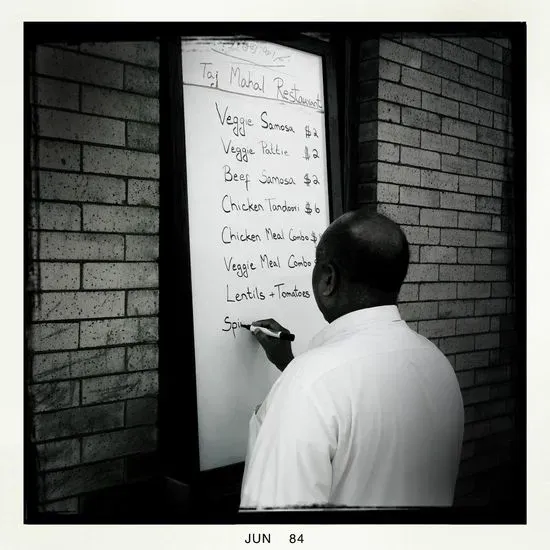 Taj Mahal Restaurant
Veggie Samosa $2
Veggie Pattie $2
Beef Samosa $2
Chicken Tandoori $6
Chicken Meal Combo $
Veggie Meal Combo
Lentils + Tomatoes
Spi
JUN 84